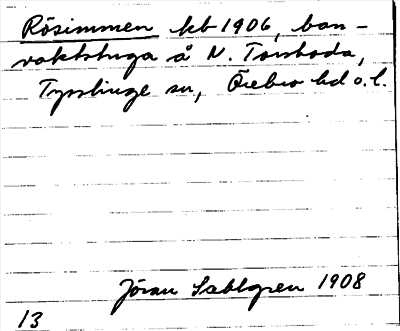 Rösimmen kb 1906, ban-
vaktstuga å N. Torsboda,
Tysslinge sn, Örebro hd o. l.
Jöran Sahlgren 1908
13